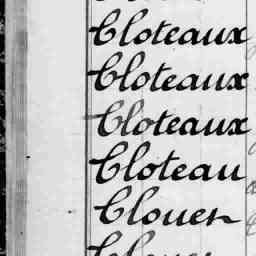 Cloteaux
Cloteaux
Cloteaux
Cloteau
Clouer